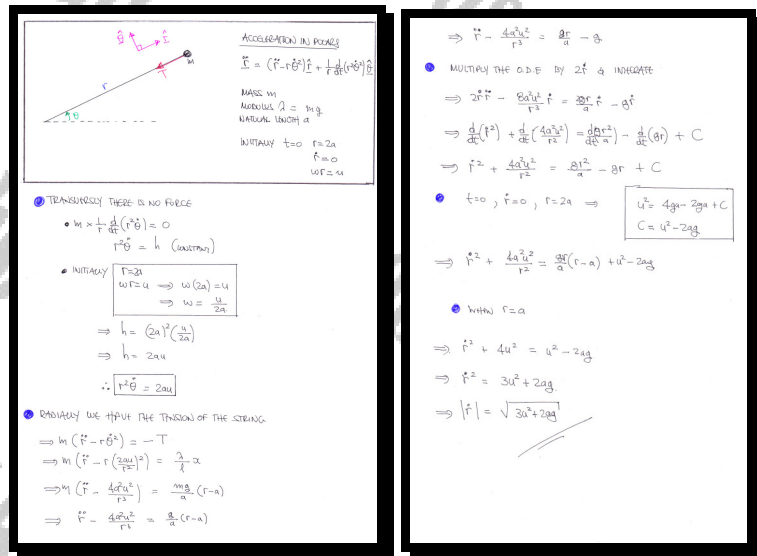 ACCELERATION IN POLARS
r̈ = (r̈ - rθ̇²) r̂ + 1/r d/dt (r²θ̇) θ̂
MASS m
MODULUS λ = mg
NATURAL LENGTH a
INITIALLY t=0 r=2a
ṙ=0
ωr=u
θ̂
r̂
m
T
r
θ
TRANSVERSELY THERE IS NO FORCE
• m × 1/r d/dt (r²θ̇) = 0
r²θ̇ = h (CONSTANT)
• INITIALLY r=2a
ωr=u ⇒ ω(2a)=u
⇒ ω = u/2a
⇒ h = (2a)² (u/2a)
⇒ h = 2au
∴ r²θ̇ = 2au
RADIALLY WE HAVE THE TENSION OF THE STRING
⇒ m (r̈ - rθ̇²) = -T
⇒ m (r̈ - r(2au/r²)²) = λ/l x
⇒ m (r̈ - 4a²u²/r³) = mg/a (r-a)
⇒ r̈ - 4a²u²/r³ = g/a (r-a)
⇒ r̈ - 4a²u²/r³ = gr/a - g
MULTIPLY THE O.D.E BY 2ṙ & INTEGRATE
⇒ 2ṙr̈ - 8a²u²/r³ ṙ = 2gr/a ṙ - gṙ
⇒ d/dt (ṙ²) + d/dt (4a²u²/r²) = d/dt (gr²/a) - d/dt (gr) + C
⇒ ṙ² + 4a²u²/r² = gr²/a - gr + C
t=0, ṙ=0, r=2a ⇒ u² = 4ga - 2ga + C
C = u² - 2ag
⇒ ṙ² + 4a²u²/r² = gr/a (r-a) + u² - 2ag
WHEN r=a
⇒ ṙ² + 4u² = u² - 2ag
⇒ ṙ² = 3u² + 2ag
⇒ |ṙ| = √(3u² + 2ag)